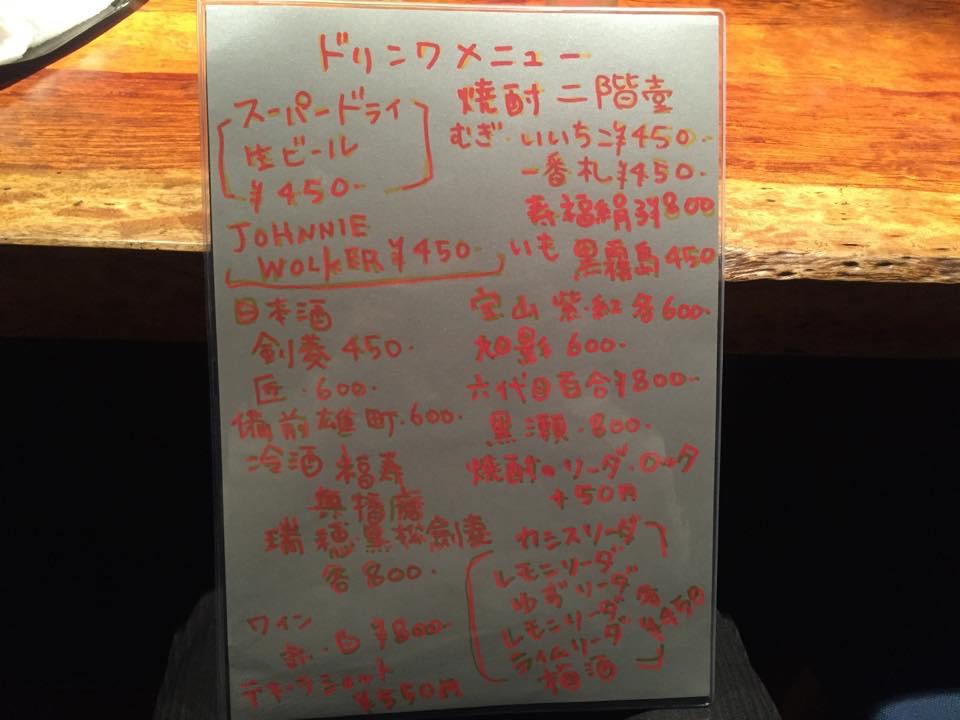 ドリンクメニュー
スーパードライ
生ビール
¥450-
JOHNNIE
WOLKER ¥450-
日本酒
剣菱 450-
匠・600-
備前雄町・600-
冷酒 福寿
無播磨
瑞穂・黒松剣菱
各800-
ワイン
赤・白 ¥800-
テキーラショット
¥550円
焼酎 二階壺
むぎ・いいちご¥450-
一番札¥450-
寿福絹¥800
いも 黒霧島 450
宝山 紫・紅 各600-
600-
六代目百合¥800-
黒瀬・800-
焼酎のソーダ・ロック
+50円
カシスソーダ
レモンソーダ
ゆずソーダ
レモンソーダ 各¥450
ライムソーダ
梅酒